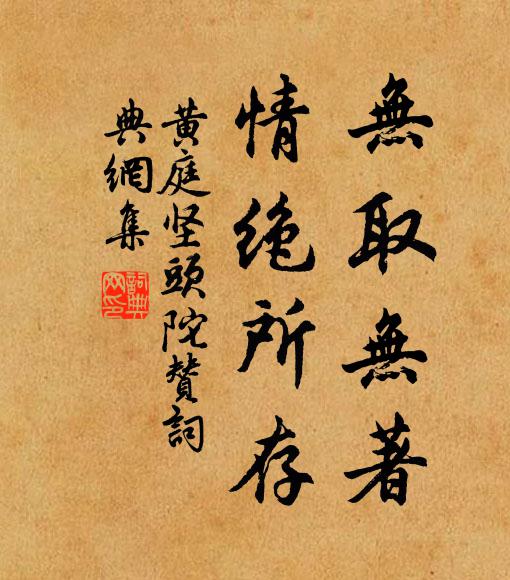 無取無著
情绝所存
黄庭坚頭陀赞詞
典網集
詞典
网印